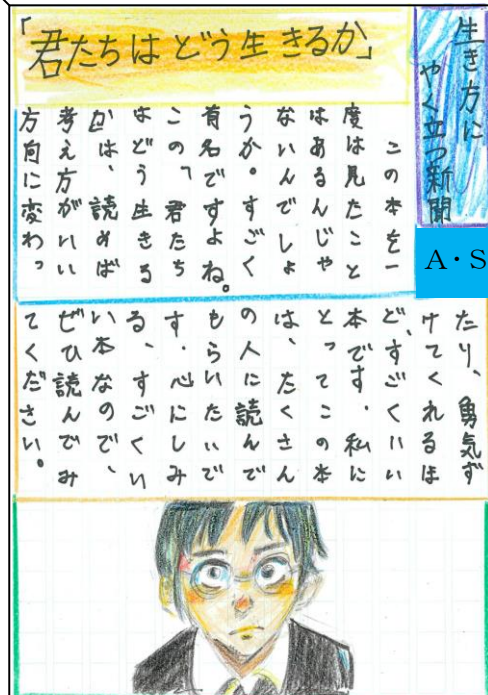 生き方に
やく立つ新聞
A・S
「君たちはどう生きるか」
この本を一
度は見たこと
はあるんじゃ
ないんでしょ
うか。すごく
有名ですよね。
この「君たち
はどう生きる
か」は、読めば
考え方がいい
方向に変わっ
たり、勇気ず
けてくれるほ
ど、すごくいい
本です。私に
とってこの本
は、たくさん
の人に読んで
もらいたいで
す。心にしみ
る、すごくい
い本なので、
ぜひ読んでみ
てください。